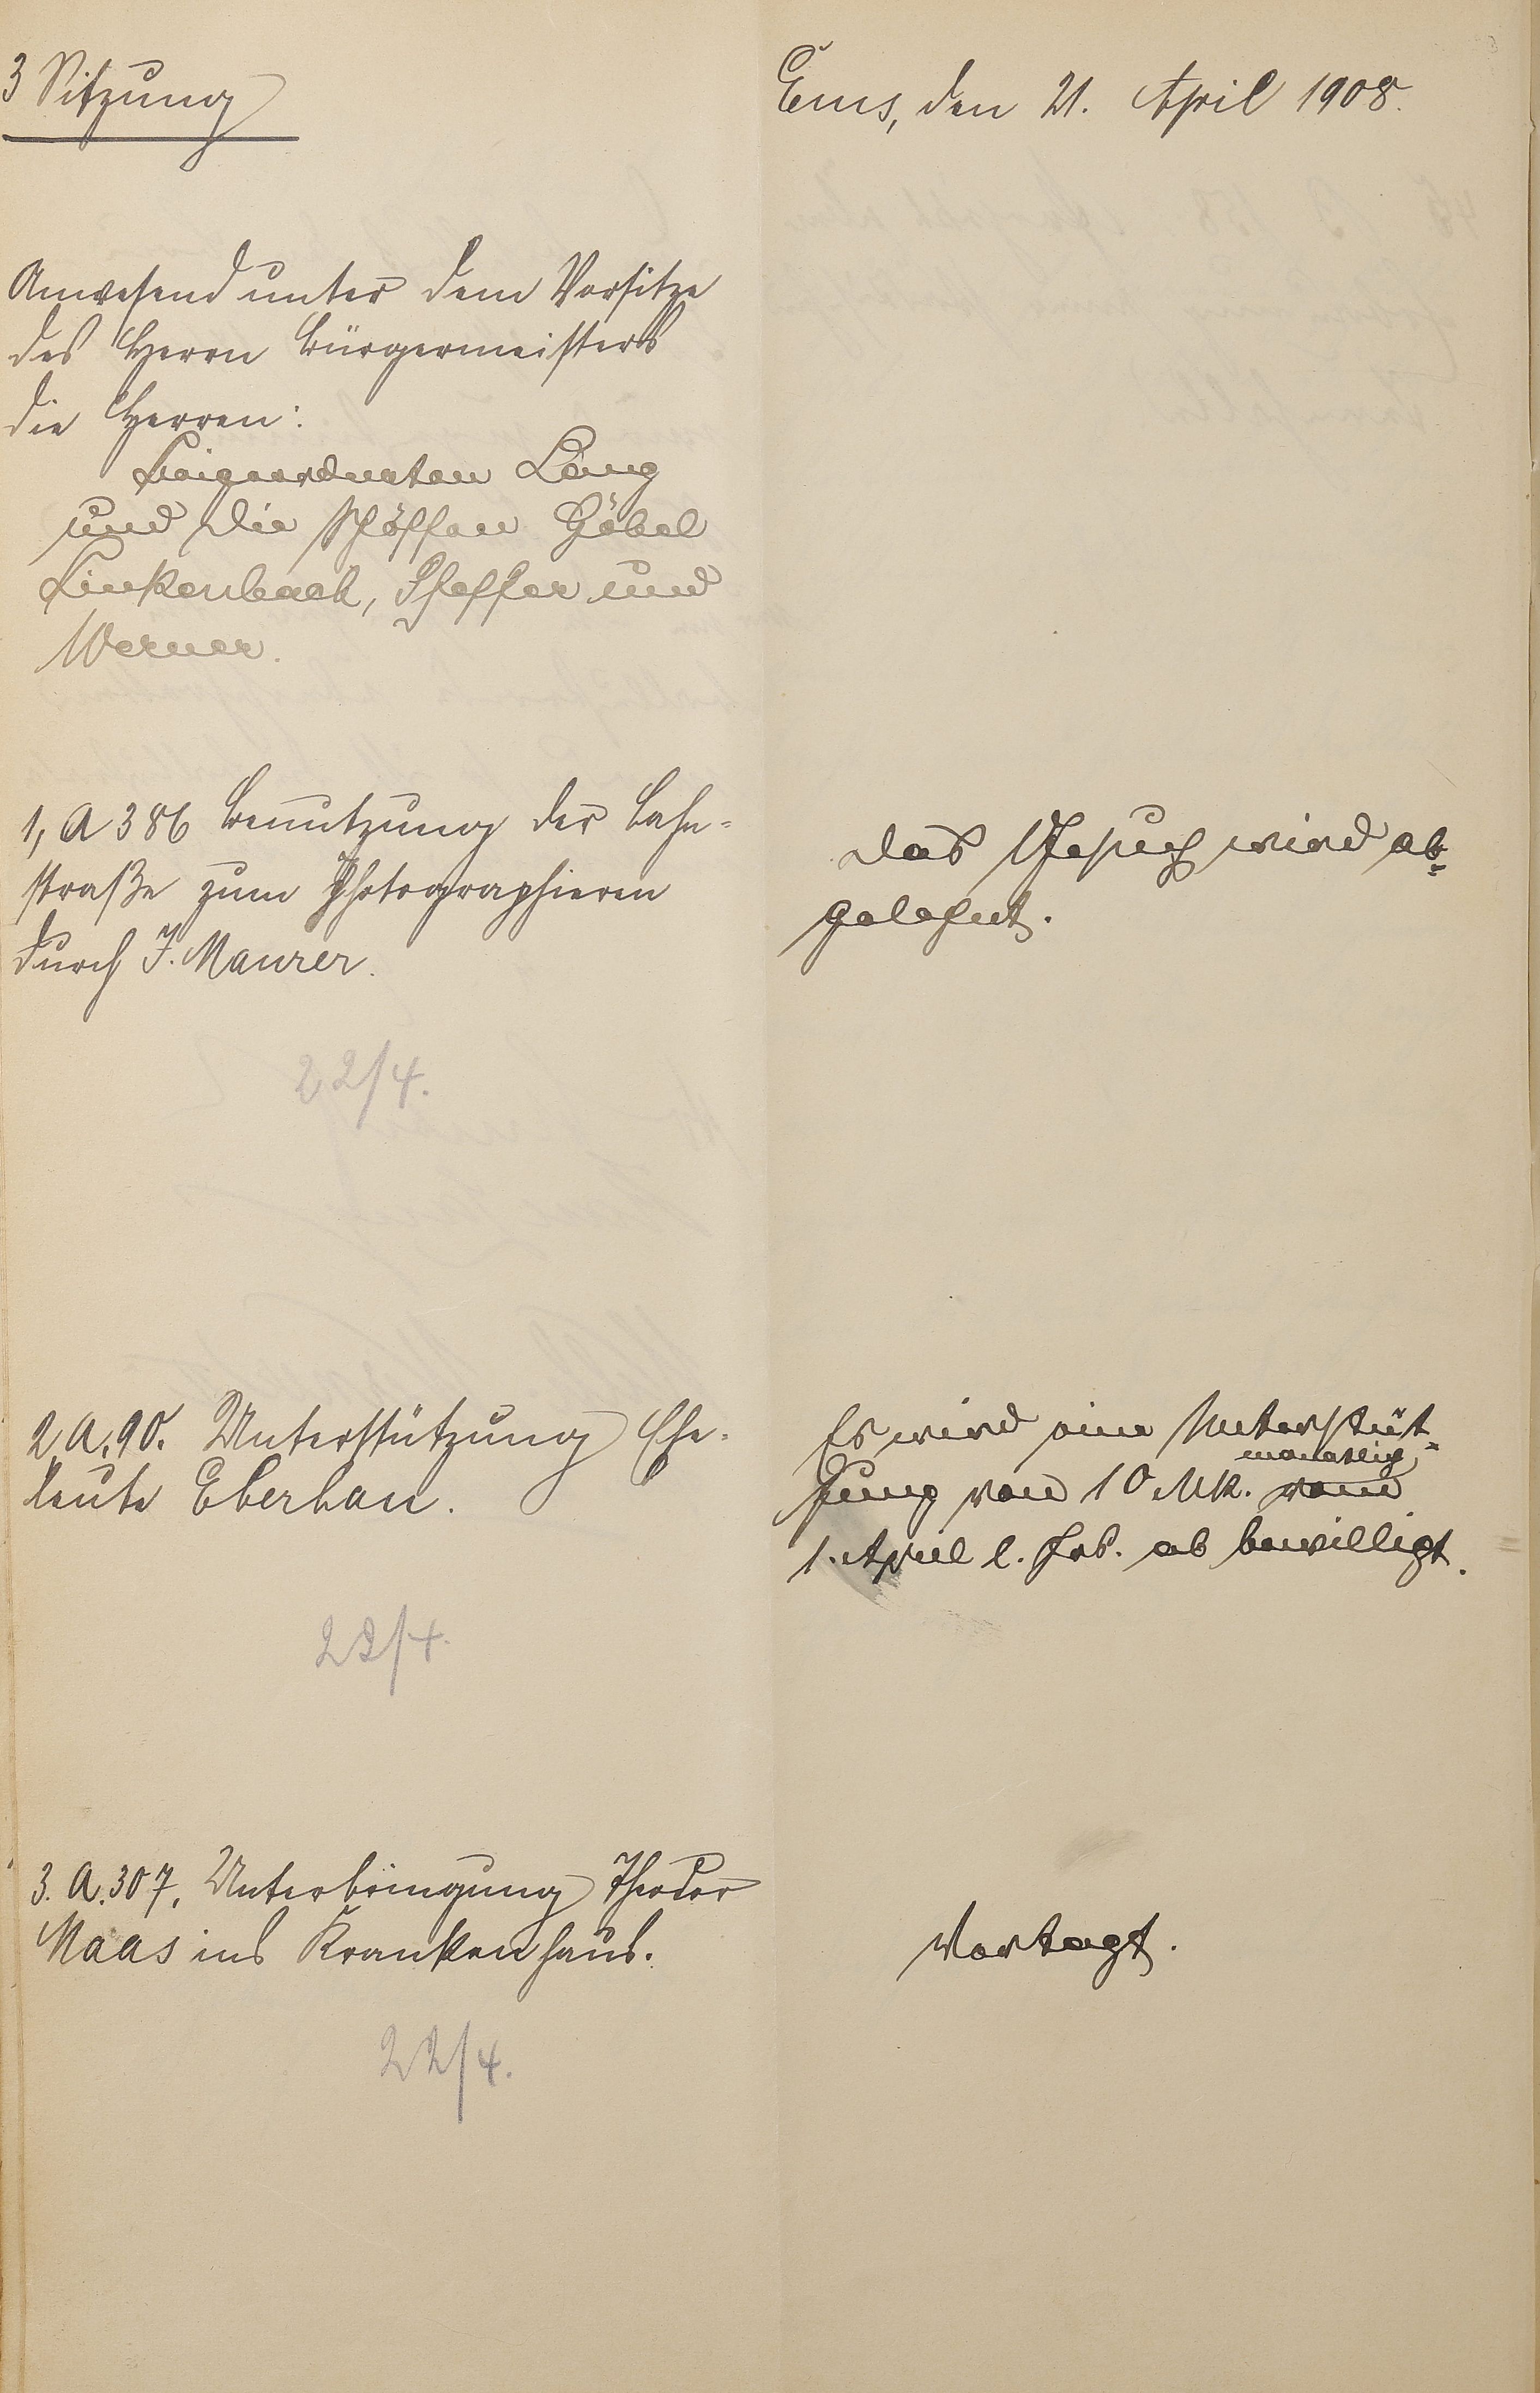 3 Sitzung
Ems, den 21. April 1908.
Anwesend unter dem Vorsitze
des Herrn Bürgermeisters
die Herren:
Beigeordneten Lang
und die Schöffen Göbel
Linkenbach, Pfeffer und
Werner.
1, A 386 Benutzung der Lahn-
straße zum Photographieren
durch J. Maurer.
Das Gesuch wird ab-
gelehnt.
22/4.
2 A. 90. Unterstützung Ehe-
leute Eberhan.
Es wird eine Unterstüt-
monatlich
zung von 10 Mk. vom
1. April l. Jrs. ab bewilligt.
22/4.
3. A. 307. Unterbringung Theodor
Maas ins Krankenhaus.
Vertagt.
22/4.